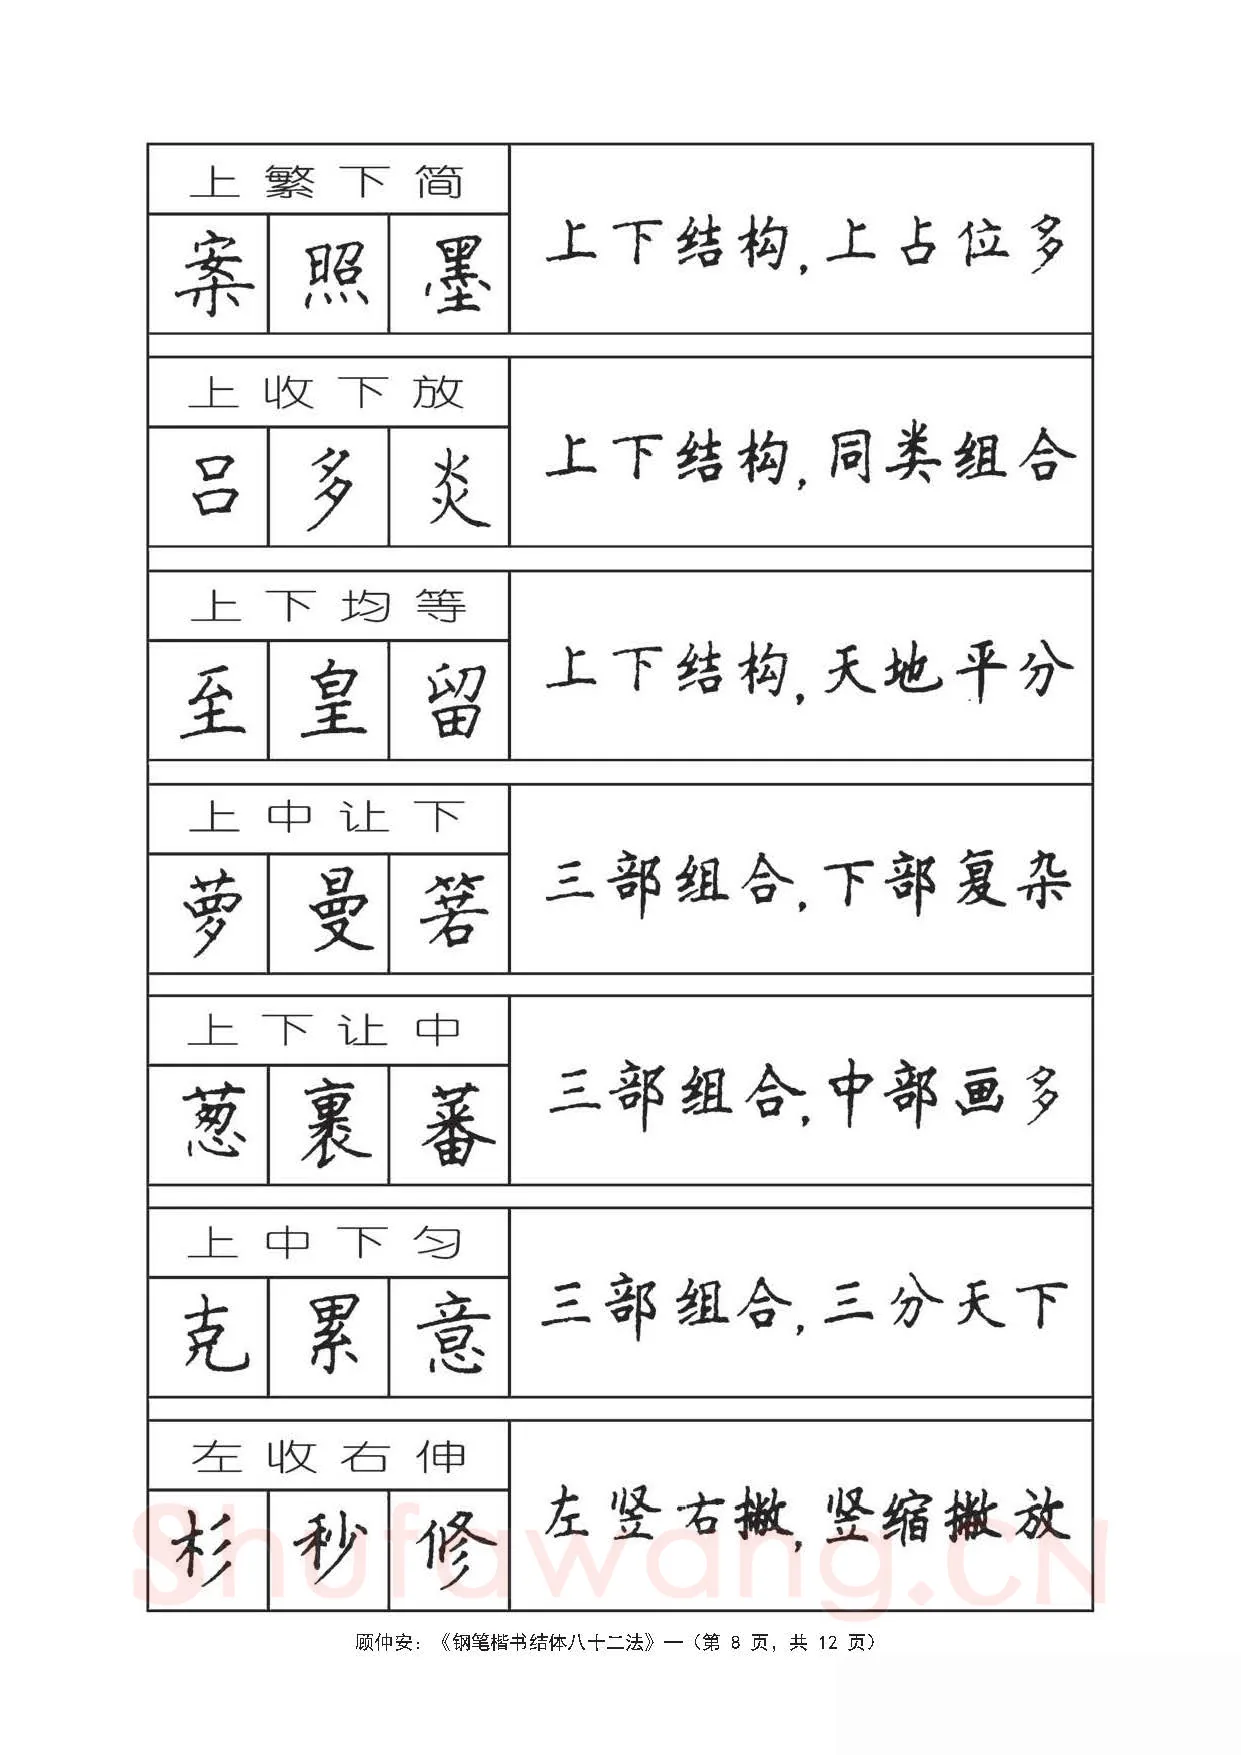 上繁下简
案 照 墨
上下结构,上占位多
上收下放
吕 多 炎
上下结构,同类组合
上下均等
至 皇 留
上下结构,天地平分
上中让下
萝 曼 箬
三部组合,下部复杂
上下让中
葱 裹 蕃
三部组合,中部画多
上中下匀
克 累 意
三部组合,三分天下
左收右伸
杉 秒 修
左竖右撇,竖缩撇放
Shufawang.CN
顾仲安:《钢笔楷书结体八十二法》—(第 8 页,共 12 页)